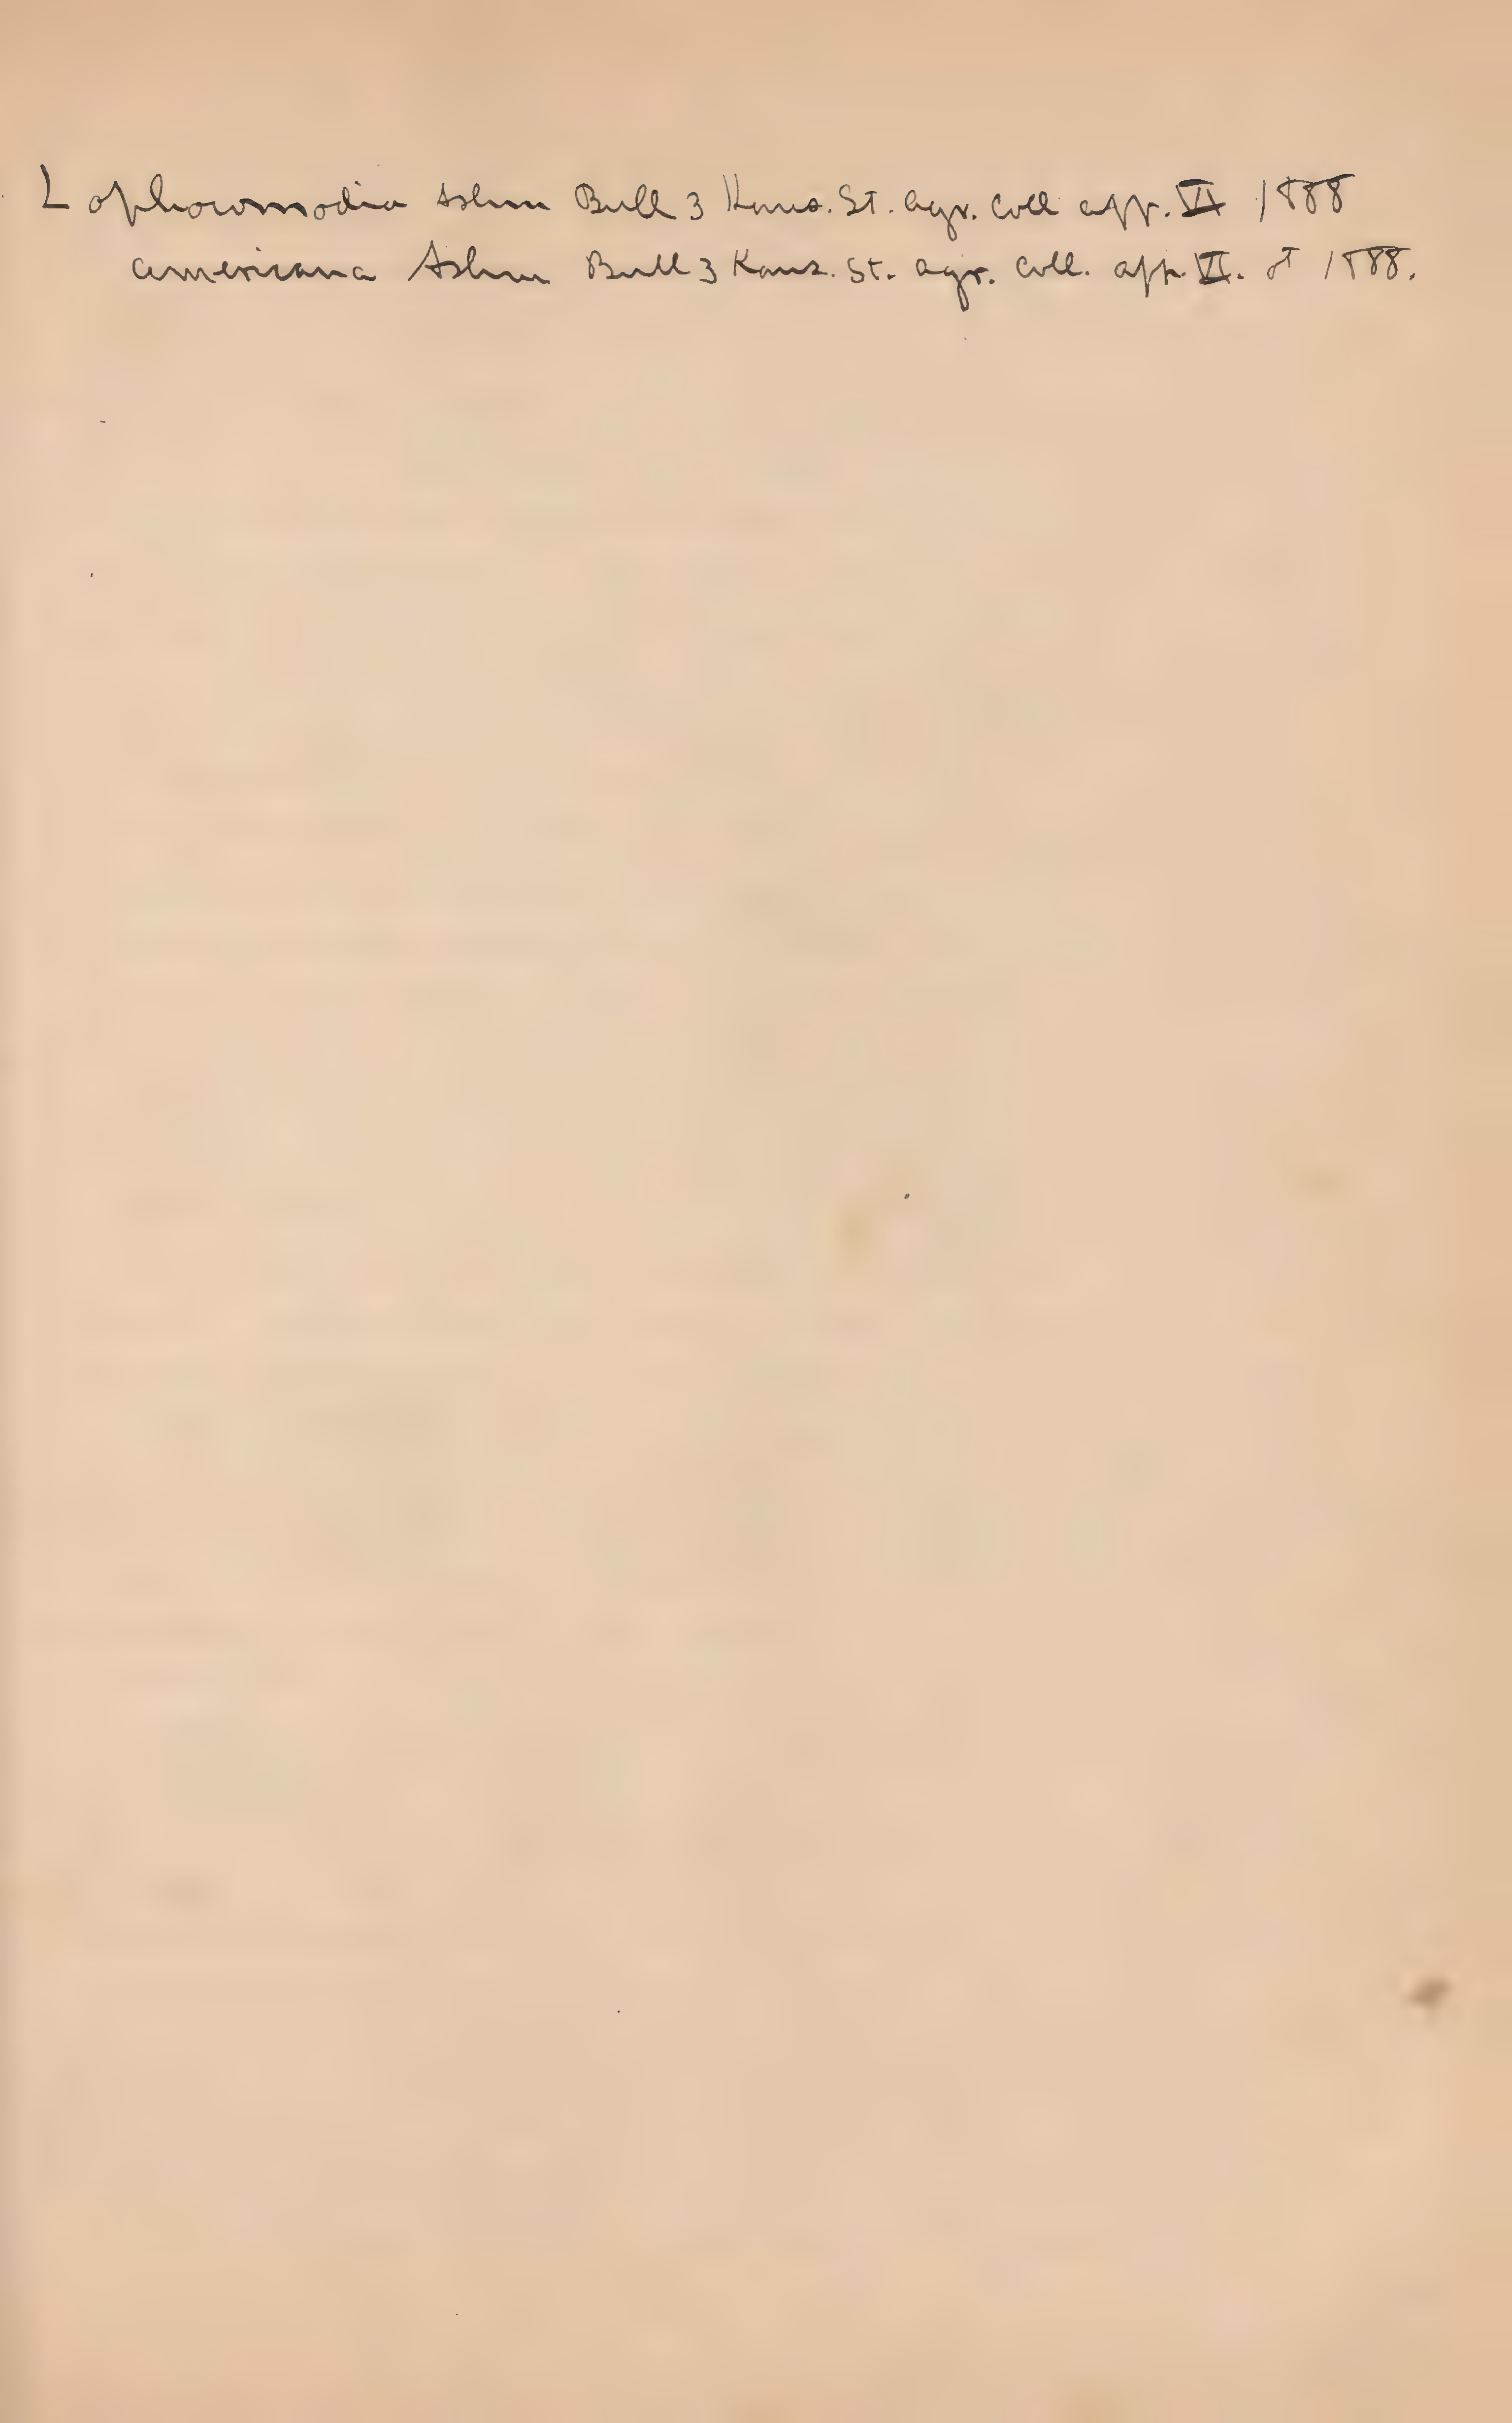 Lophocomodia Ashm Bull 3 Kans. St. agr. coll app. VI 1888
americana Ashm Bull 3 Kans. St. agr. coll. app. VI. ♂ 1888.